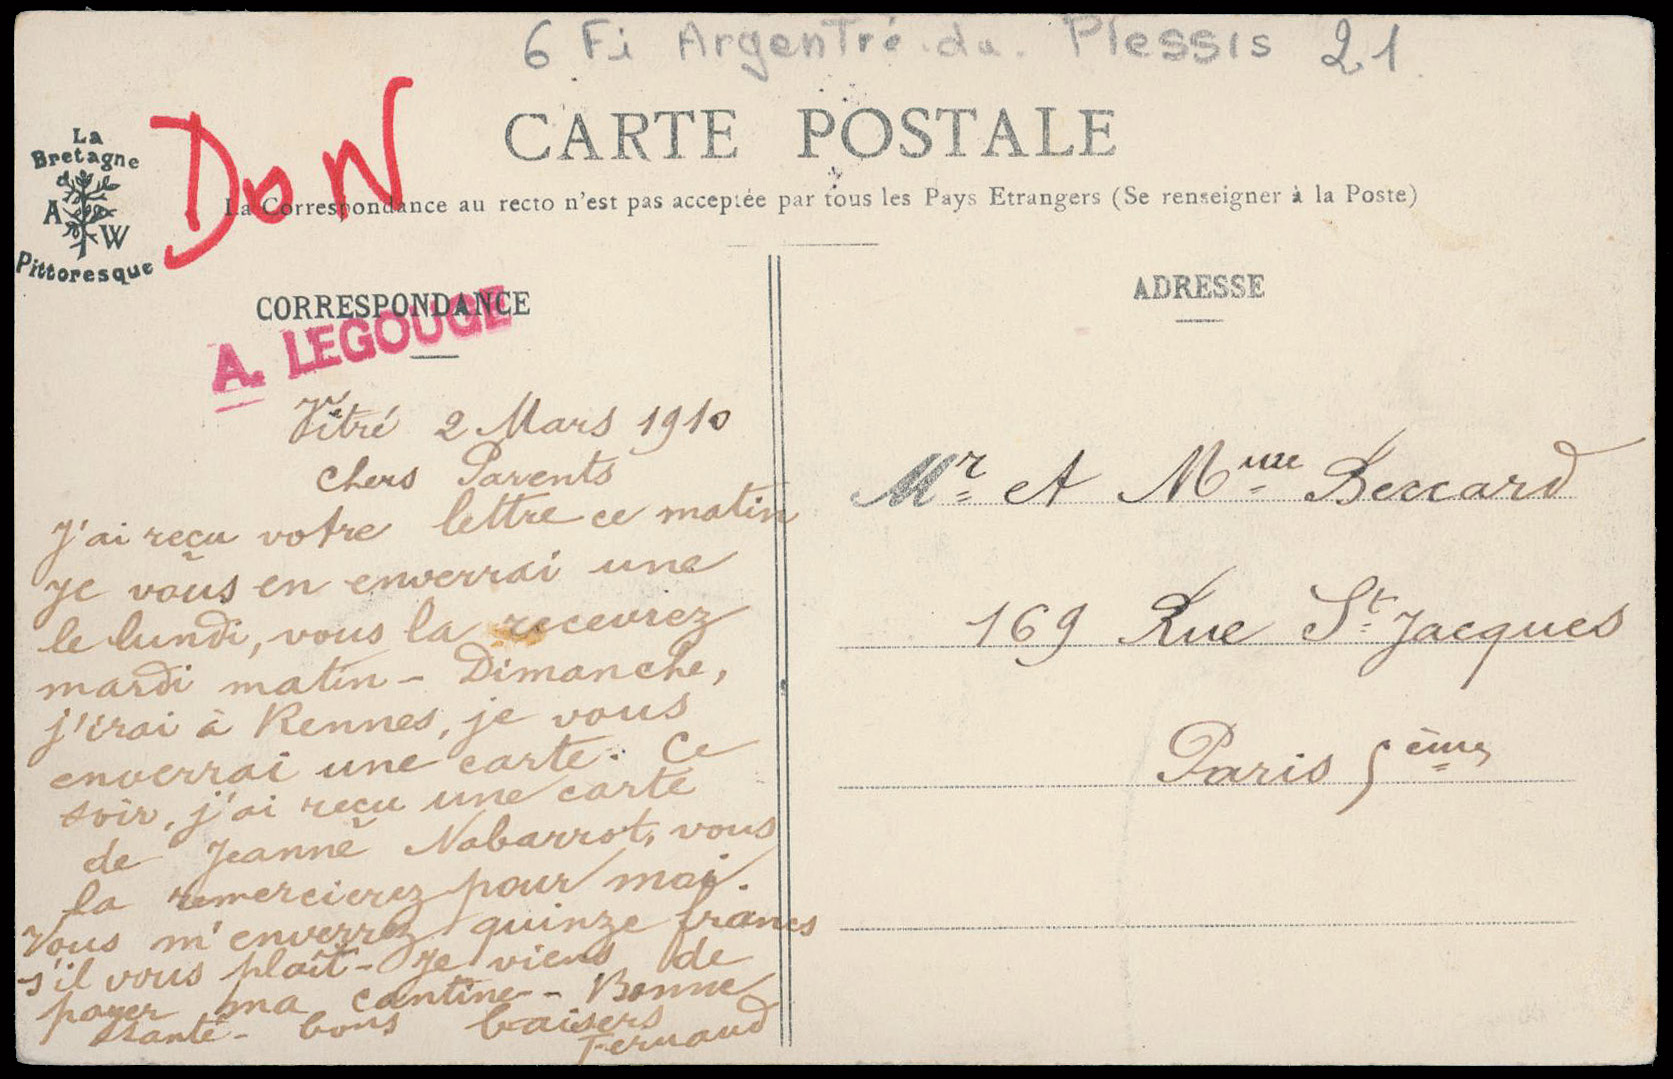 6 Fi Argentré du Plessis 21
La
Bretagne
A W
Pittoresque
DON
CARTE POSTALE
La Correspondance au recto n'est pas acceptée par tous les Pays Etrangers (Se renseigner à la Poste)
CORRESPONDANCE
A. LEGOUGE
Vitré 2 Mars 1910
Chers Parents
J'ai reçu votre lettre ce matin
je vous en enverrai une
le lundi, vous la recevrez
mardi matin - Dimanche,
j'irai à Rennes, je vous
enverrai une carte. Ce
soir, j'ai reçu une carte
de Jeanne Nabarrot, vous
la remercierez pour moi.
Vous m'enverrez quinze francs
s'il vous plaît - je viens de
payer ma cantine - Bonne
santé - bons baisers
Fernand
ADRESSE
Mr et Mme Bessard
169 Rue St Jacques
Paris 5ème